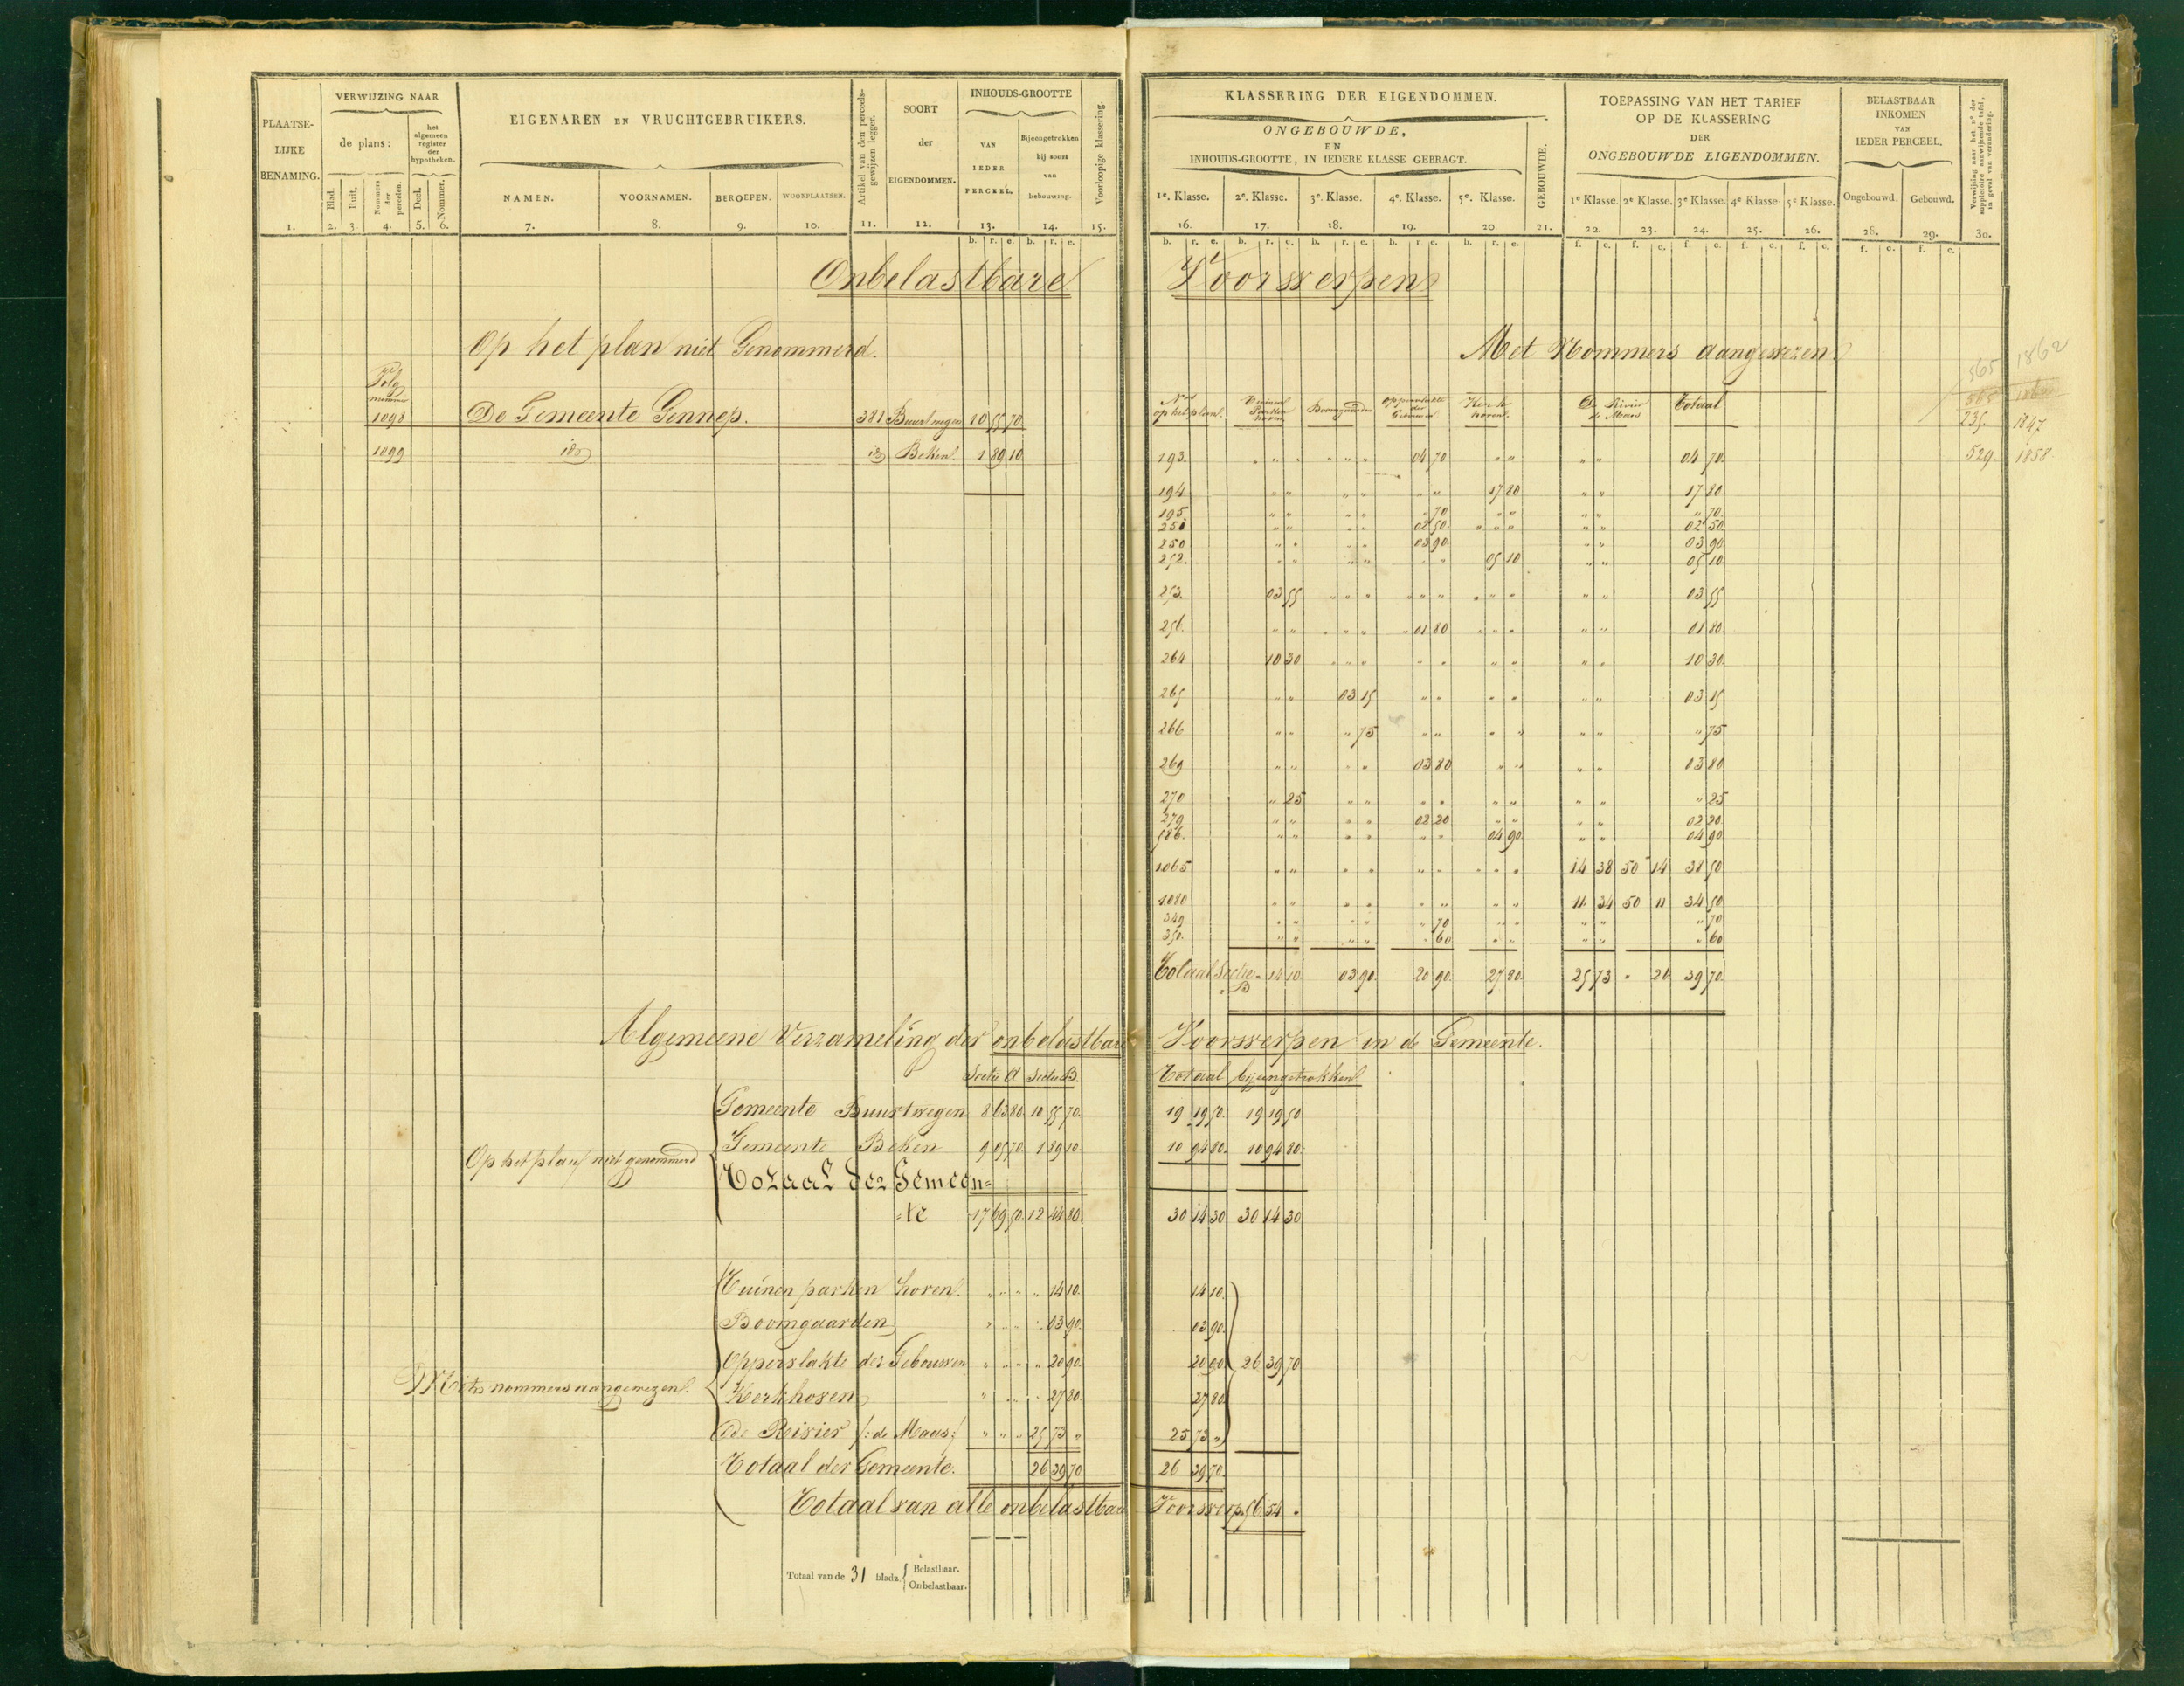 PLAATSE-
LIJKE
BENAMING.
1.
VERWIJZING NAAR
de plans:
het
algemeen
register
der
hypotheken.
Blad.
2.
Ruit.
3.
Nommers
der
perceelen.
4.
Deel.
5.
Nommer.
6.
EIGENAREN EN VRUCHTGEBRUIKERS.
NAMEN.
7.
VOORNAMEN.
8.
BEROEPEN.
9.
WOONPLAATSEN.
10.
Artikel van den perceels-
gewijzen legger.
11.
SOORT
der
EIGENDOMMEN.
12.
INHOUDS-GROOTTE
VAN
IEDER
PERCEEL.
13.
Bijeengetrokken
bij soort
van
bebouwing.
14.
Voorloopige klassering.
15.
b. r. e. b. r. e.
KLASSERING DER EIGENDOMMEN.
ONGEBOUWDE,
EN
INHOUDS-GROOTTE, IN IEDERE KLASSE GEBRAGT.
1e. Klasse. 2e. Klasse. 3e. Klasse. 4e. Klasse. 5e. Klasse.
16. 17. 18. 19. 20
GEBOUWDE.
21.
TOEPASSING VAN HET TARIEF
OP DE KLASSERING
DER
ONGEBOUWDE EIGENDOMMEN.
1e Klasse. 2e Klasse. 3e Klasse. 4e Klasse 5e Klasse.
22. 23. 24. 25. 26.
BELASTBAAR
INKOMEN
VAN
IEDER PERCEEL.
Ongebouwd. Gebouwd.
28. 29.
Verwijzing naar het no. der
suppletoire aanwijzende tafel,
in geval van verandering.
30.
b. r. e. b. r. e. b. r. e. b. r. e. b. r. e. f. c. f. c. f. c. f. c. f. c. f. c. f. c.
Onbelastbare Voorwerpen
Op het plan niet Genommerd.
Met Nommers Aangewezen.
1098 De Gemeente Gennep. 381 Buurtwegen 10 55 70
1099 id id Beken. 1 89 10
565 1862
235. 1847
529. 1858
Nos
op het plan. Tuinen
Parken
hoven Boomgaarden Oppervlakte
der
Gebouwen Kerk
hoven. De Rivier
de Maas Totaal
193. " " " " " " 04 70 " " " " 04 70
194 " " " " " " 17 80 " " 17 80
195. " " " " " 70 " " " " " 70
251 " " " " 02 50 " " " 02 50
250 " " " " 03 90 " " 03 90
252. " " " " " " 05 10 " " 05 10
253. 03 55 " " " " " " " " " " " 03 55
256. " " " " " " 01 80 " " " " " 01 80
264 10 30 " " " " " " " " " 10 30
265 " " 03 15 " " " " " " 03 15
266 " " " 75 " " " " " " " 75
269 " " " " 03 80 " " " " 03 80
270 " 25 " " " " " " " " " 25
279 " " " " 02 20 " " " " 02 20
586. " " " " " " 04 90 " " 04 90
1065 " " " " " " " " " 14 38 50 14 38 50
1080 " " " " " " " " 11 34 50 11 34 50
349 " " " " " 70 " " " " " 70
350. " " " " " 60 " " " " " 60
Totaal Sectie B " 14 10 03 90 20 90 27 80 25 73 " 26 39 70
Algemeene Verzameling der onbelastbare Voorwerpen in de Gemeente.
Sectie A Sectie B. Totaal bijeengetrokken
Op het plan niet genommerd
Gemeente Buurtwegen 8 63 80 10 55 70 19 19 50 19 19 50
Gemeente Beken 9 05 70 1 89 10 10 94 80 10 94 80
Totaal der Gemeen=
=te 17 69 50 12 44 80 30 14 30 30 14 30
Met nommers aangewezen.
Tuinen parken hoven. " " " " 14 10 14 10
Boomgaarden " " " " 03 90 03 90
Oppervlakte der Gebouwen " " " " 20 90 20 90 26 39 70
Kerkhoven " " " " 27 80 27 80
De Rivier /: de Maas :/ " " " 25 73 " 25 73 "
Totaal der Gemeente. 26 39 70 26 39 70
Totaal van alle onbelastbare Voorwerp. 56 54 "
Totaal van de 31 bladz. { Belastbaar.
Onbelastbaar.